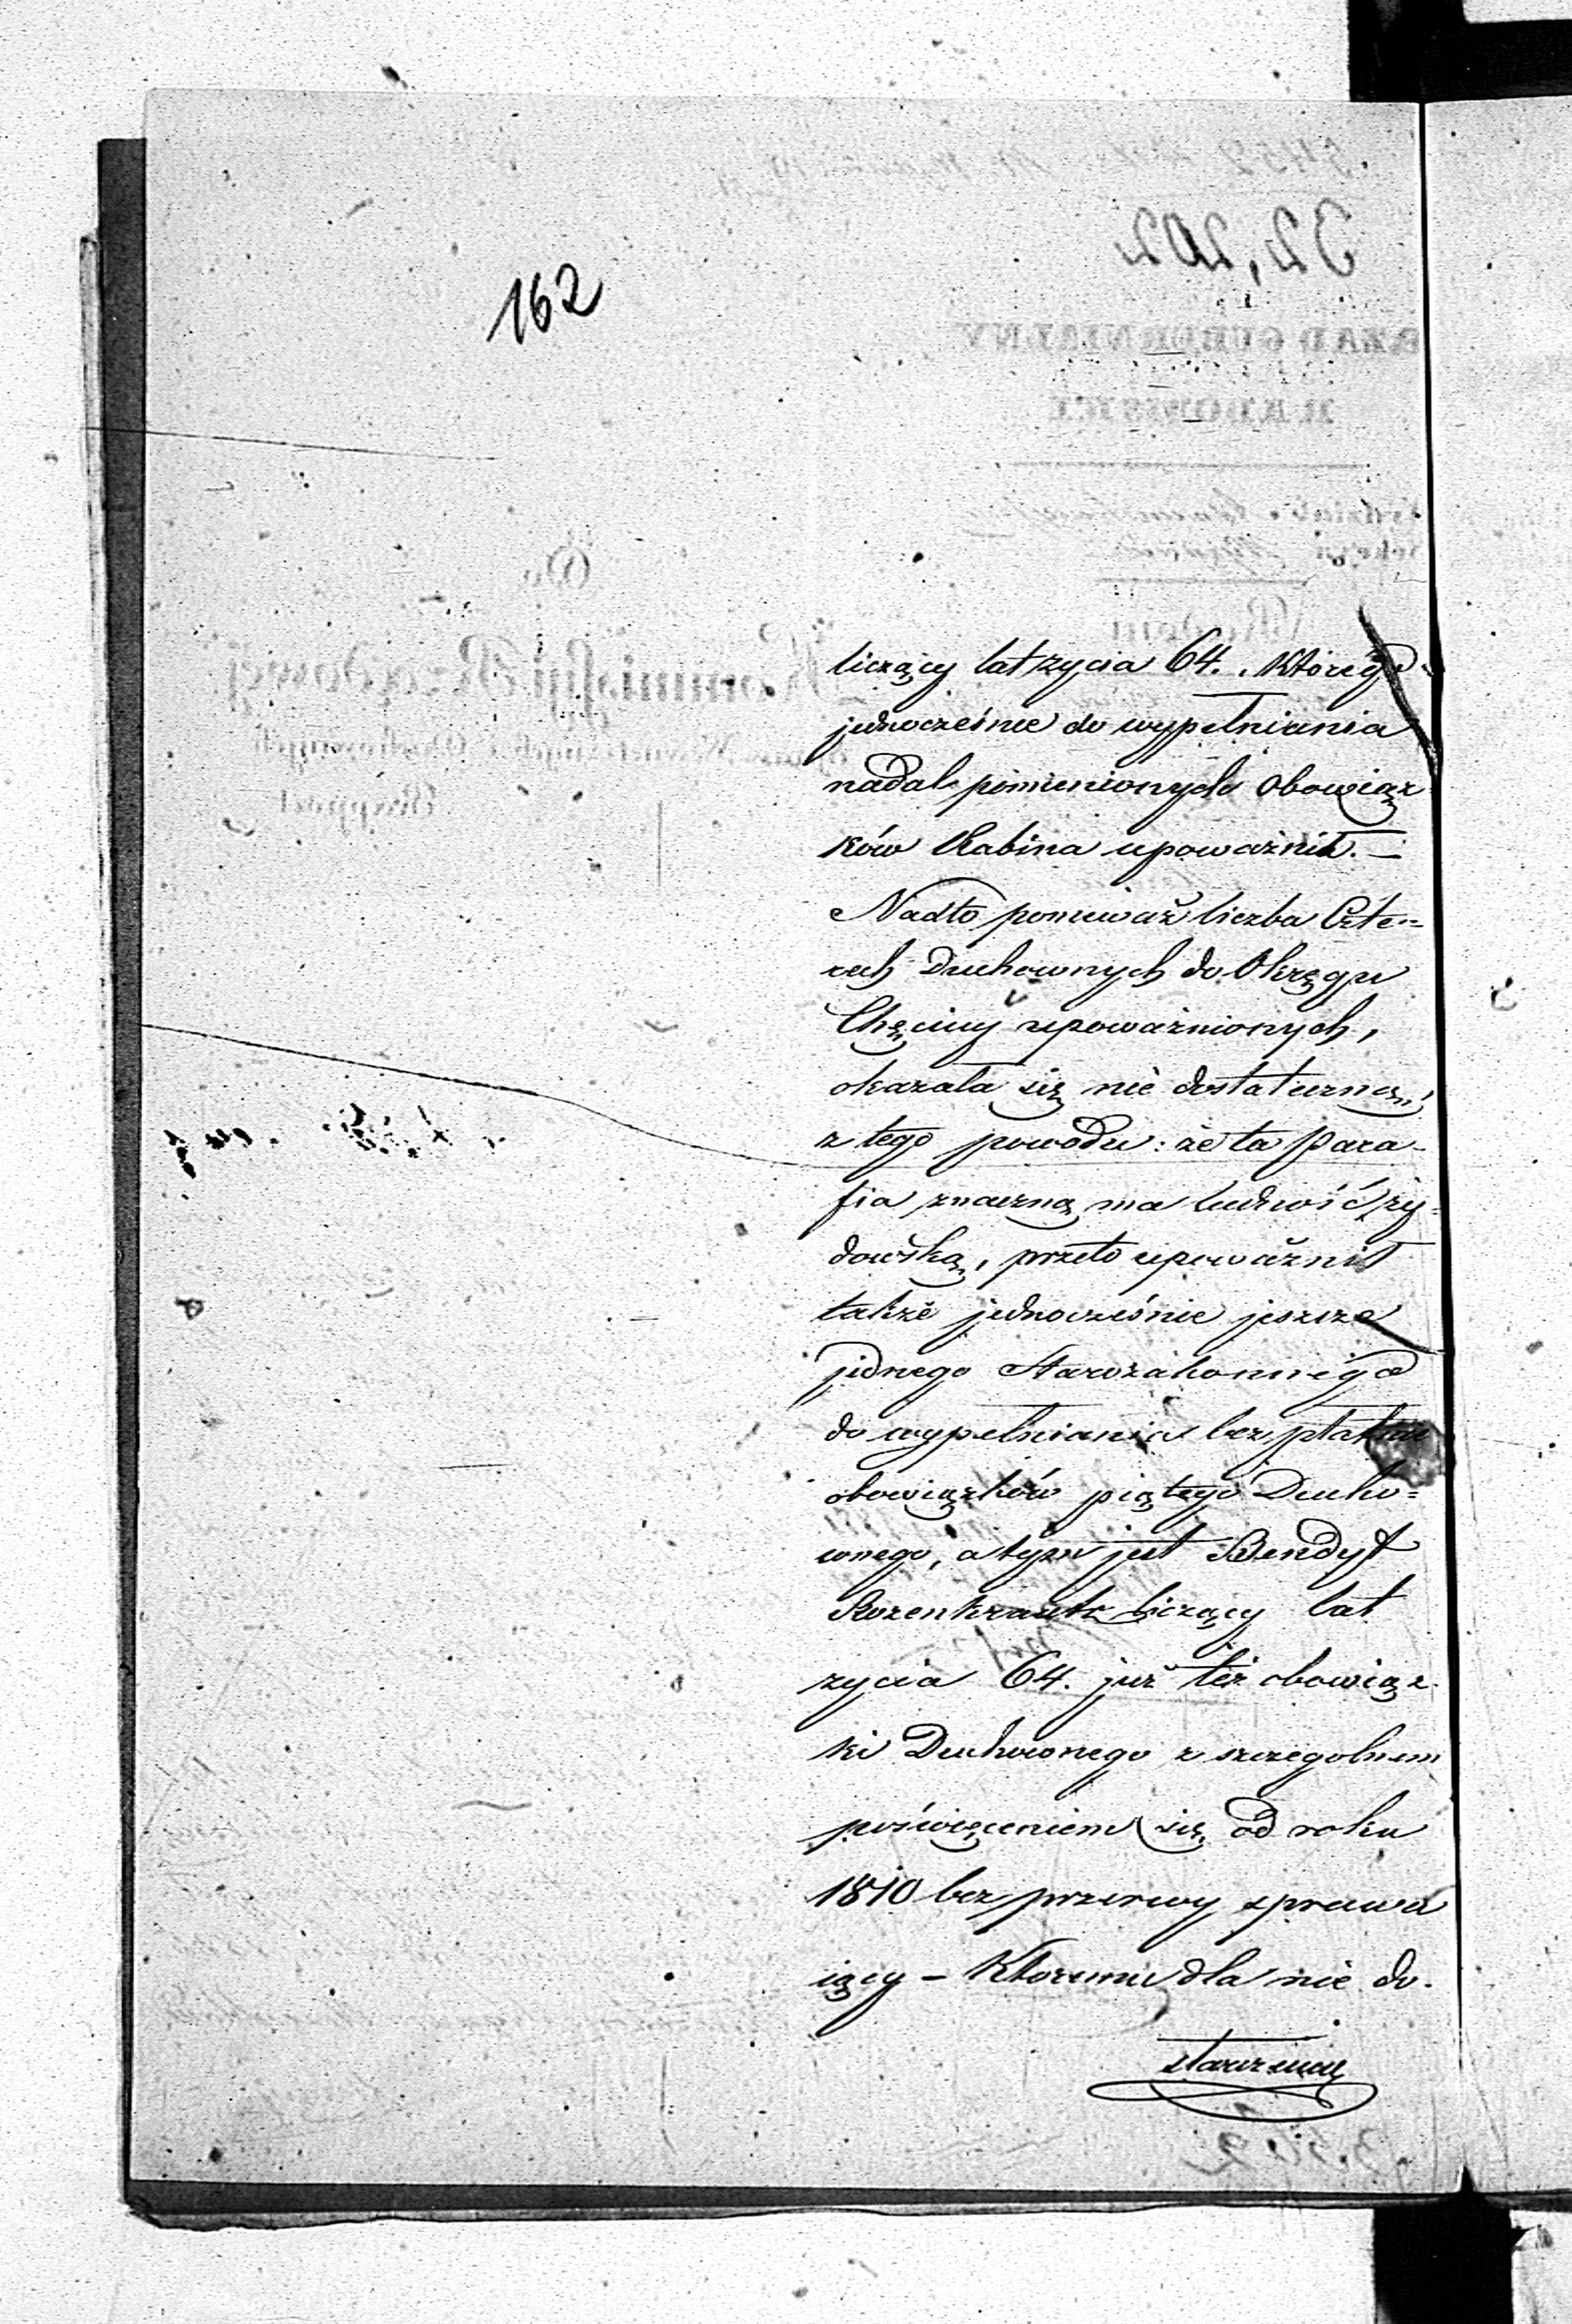 162
liczący lat zycia 64. którego
jednocześnie do wypełniania
nadal pomienionych obowiąz
ków Rabina upoważnił. —
Nadto ponieważ liczba Czte=
rech Duchownych do Okręgu
Chęciny upoważnionych,
okazała się nie dostateczną,
z tego powodu: że ta Para-
fia znaczną ma ludność ży-
dowską, przeto upoważnił
także jednocześnie jeszcze
jednego Starozakonnego
do wypełniania bezpłatnie
obowiązków piątego Ducho=
wnego, a tym jest Bendyt
Rozenkrantz liczący lat
zycia 64. już też obowiąz-
ki Duchownego z szczegolnem
poświęceniem się od roku
1810 bez przerwy sprawu
iący – Ktoremu dla nie do-